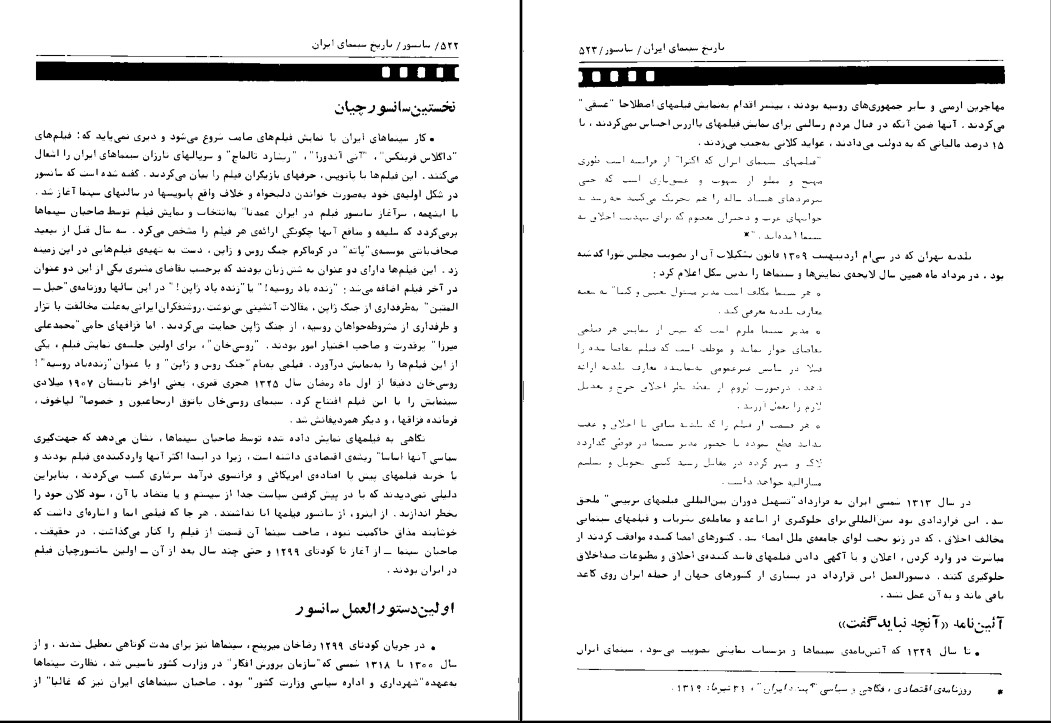 ۵۲۲/ سانسور/ تاریخ سینمای ایران
نخستین سانسورچیان
• کار سینماهای ایران با نمایش فیلم‌های صامت شروع می‌شود و دیری نمی‌پاید که؛ فیلم‌های
"داگلاس فربنکس"، "آنی آندورا"، "ریشارد تالماج" و سریالهای تارزان سینماهای ایران را اشغال
می‌کنند. این فیلم‌ها با پانویس، حرفهای بازیگران فیلم را بیان می‌کردند. گفته شده است که سانسور
در شکل اولیه‌ی خود به‌صورت خواندن دلبخواه و خلاف واقع پانویسها در سالنهای سینما آغاز شد.
با اینهمه، سرآغاز سانسور فیلم در ایران عمدتا" به‌انتخاب و نمایش فیلم توسط صاحبان سینماها
برمی‌گردد که سلیقه و منافع آنها چگونگی ارائه‌ی هر فیلم را مشخص می‌کرد. سه سال قبل از تبعید
صحاف‌باشی موسسه‌ی "پاته" در گرماگرم جنگ روس و ژاپن، دست به تهیه‌ی فیلم‌هایی در این زمینه
زد. این فیلم‌ها دارای دو عنوان به شش زبان بودند که برحسب تقاضای مشتری یکی از این دو عنوان
در آخر فیلم اضافه می‌شد: "زنده باد روسیه!" یا "زنده باد ژاپن!" در این سالها روزنامه‌ی "حبل ـ
المتین" به‌طرفداری از ژاپن، مقالات آتشینی می‌نوشت. روشنفکران‌ایرانی به‌علت مخالفت با تزار
و طرفداری از مشروطه‌خواهان روسیه، از جنگ ژاپن حمایت می‌کردند. اما قزاقهای حامی "محمدعلی
میرزا" پرقدرت و صاحب اختیار امور بودند. "روسی‌خان"، برای اولین جلسه‌ی نمایش فیلم، یکی
از این فیلم‌ها را به‌نمایش درآورد. فیلمی به‌نام "جنگ روس و ژاپن" و با عنوان "زنده‌باد روسیه"!
روسی‌خان دقیقا از اول ماه رمضان سال ۱۳۲۵ هجری قمری، یعنی اواخر تابستان ۱۹۰۷ میلادی
سینمایش را با این فیلم افتتاح کرد. سینمای روسی‌خان پاتوق ارتجاعیون و خصوصا" لیاخوف،
فرمانده قزاقها، و دیگر همردیفانش شد.
نگاهی به فیلمهای نمایش داده شده توسط صاحبان سینماها، نشان می‌دهد که جهت‌گیری
سیاسی آنها اساسا" ریشه‌ی اقتصادی داشته است، زیرا در ابتدا اکثر آنها واردکننده‌ی فیلم بودند و
با خرید فیلمهای پیش پا افتاده‌ی امریکائی و فرانسوی درآمد سرشاری کسب می‌کردند، بنابراین
دلیلی نمی‌دیدند که با در پیش گرفتن سیاست جدا از سیستم و یا متضاد با آن، سود کلان خود را
بخطر اندازند. از اینرو، از سانسور فیلمها ابا نداشتند. هر جا که فیلمی ایما و اشاره‌ای داشت که
خوشایند مذاق حاکمیت نبود، صاحب سینما آن قسمت از فیلم را کنار می‌گذاشت. در حقیقت،
صاحبان سینما ـ از آغاز تا کودتای ۱۲۹۹ و حتی چند سال بعد از آن ـ اولین سانسورچیان فیلم
در ایران بودند.
اولین دستورالعمل سانسور
• در جریان کودتای ۱۲۹۹ رضاخان میرپنج، سینماها نیز برای مدت کوتاهی تعطیل شدند. و از
سال ۱۳۰۰ تا ۱۳۱۸ شمسی که "سازمان پرورش افکار" در وزارت کشور تاسیس شد، نظارت سینماها
به‌عهده "شهرداری و اداره سیاسی وزارت کشور" بود. صاحبان سینماهای ایران نیز که غالبا" از
تاریخ سینمای ایران/ سانسور/۵۲۳
مهاجرین ارمنی و سایر جمهوری‌های روسیه بودند، بیشتر اقدام به‌نمایش فیلمهای اصطلاحا "عشقی"
می‌کردند. آنها ضمن آنکه در قبال مردم رسالتی برای نمایش فیلمهای باارزش احساس نمی‌کردند، با
۱۵ درصد مالیاتی که به دولت می‌دادند، عواید کلانی به‌جیب می‌زدند.
"فیلمهای سینمای ایران که اکثرا" از فرانسه است طوری
مهیج و مملو از شهوت و عشق‌بازی است که حتی
پیرمردهای هشتاد ساله را هم تحریک می‌کنند چه رسد به
جوانهای عزب و دختران معصوم که برای تهذیب اخلاق به
سینما آمده‌اند." *
بلدیه تهران که در سی‌ام اردیبهشت ۱۳۰۹ قانون تشکیلات آن از تصویب مجلس شورا گذشته
بود، در مرداد ماه همین سال لایحه‌ی نمایش‌ها و سینماها را بدین شکل اعلام کرد:
o هر سینما مکلف است مدیر مسئول تعیین و کتبا" به شعبه
معارف بلدیه معرفی کند.
o مدیر سینما ملزم است که پیش از نمایش هر فیلمی
تقاضای جواز نماید و موظف است که فیلم تقاضا شده را
قبلا در سانس غیرعمومی به‌نماینده معارف بلدیه ارائه
دهد. درصورت لزوم از نقطه نظر اخلاق جرح و تعدیل
لازم را بعمل آورند.
o هر قسمت از فیلم را که بلدیه منافی با اخلاق و عفت
بداند قطع نموده با حضور مدیر سینما در قوطی گذارده
لاک و مهر کرده در مقابل رسید کتبی تحویل و تسلیم
مشارالیه خواهد داشت.
در سال ۱۳۱۳ شمسی ایران به قرارداد "تسهیل دوران بین‌المللی فیلمهای تربیتی" ملحق
شد. این قراردادی بود بین‌المللی برای جلوگیری از اشاعه و معامله‌ی نشریات و فیلمهای سینمائی
مخالف اخلاق، که در ژنو تحت لوای جامعه‌ی ملل امضاء شد. کشورهای امضا کننده موافقت کردند از
مباشرت در وارد کردن، اعلان و یا آگهی دادن فیلمهای فاسد کننده‌ی اخلاق و مطبوعات ضداخلاق
جلوگیری کنند. دستورالعمل این قرارداد در بسیاری از کشورهای جهان از جمله ایران روی کاغذ
باقی ماند و به آن عمل نشد.
آئین‌نامه «آنچه نبایدگفت»
• تا سال ۱۳۲۹ که آئین‌نامه‌ی سینماها و موسسات نمایشی تصویب می‌شود، سینمای ایران
* روزنامه‌ی اقتصادی، فکاهی و سیاسی "آینده ایران"، ۳۱ تیرماه ۱۳۱۹.